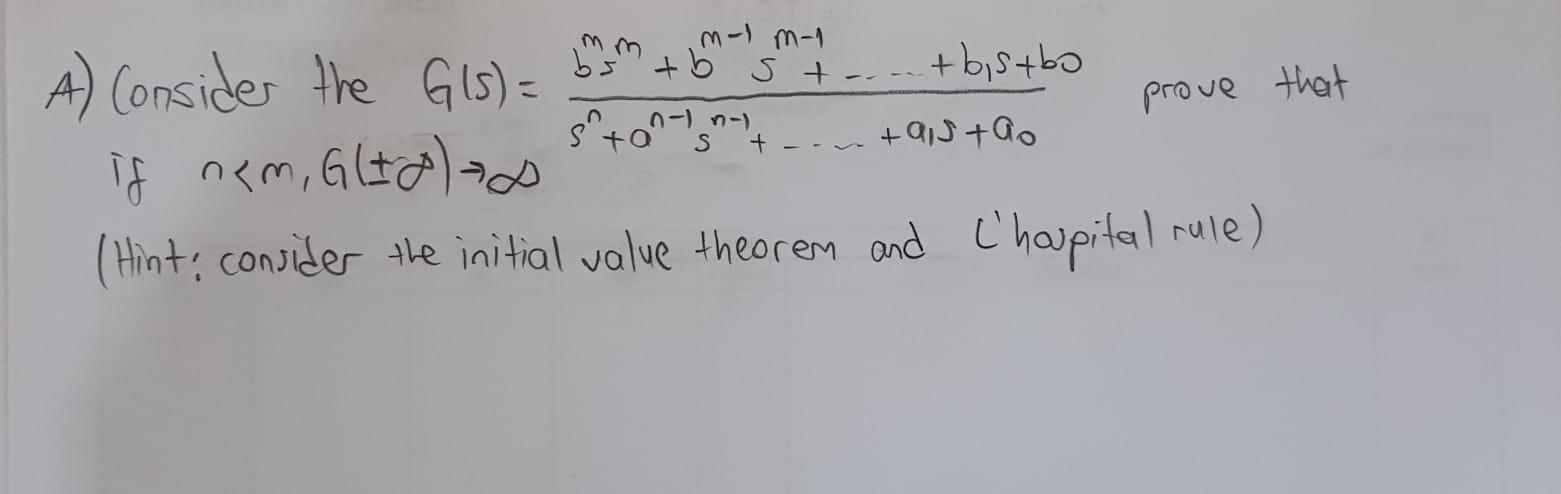 A) Consider the G(s) = b^m s^m + b^m-1 s^m-1 + ...... + b1s + b0 / s^n + a^n-1 s^n-1 + ...... + a1s + a0 prove that
if n<m, G(±∞)→∞
(Hint: consider the initial value theorem and L'hospital rule)